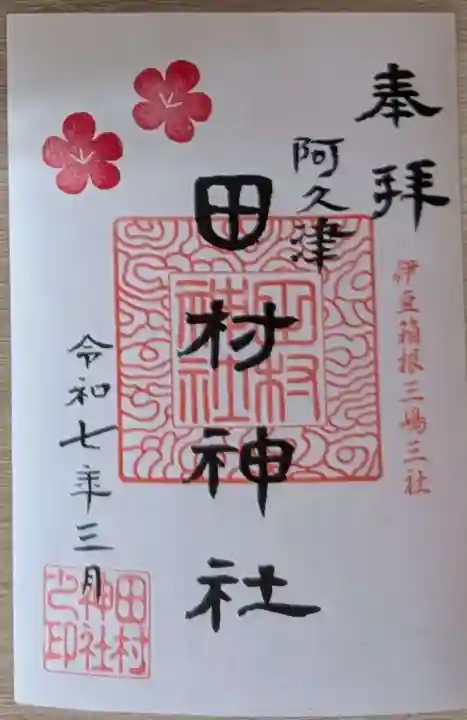 奉拝
伊豆箱根三嶋三社
阿久津
田村神社
田村神社
令和七年三月
田村神社之印